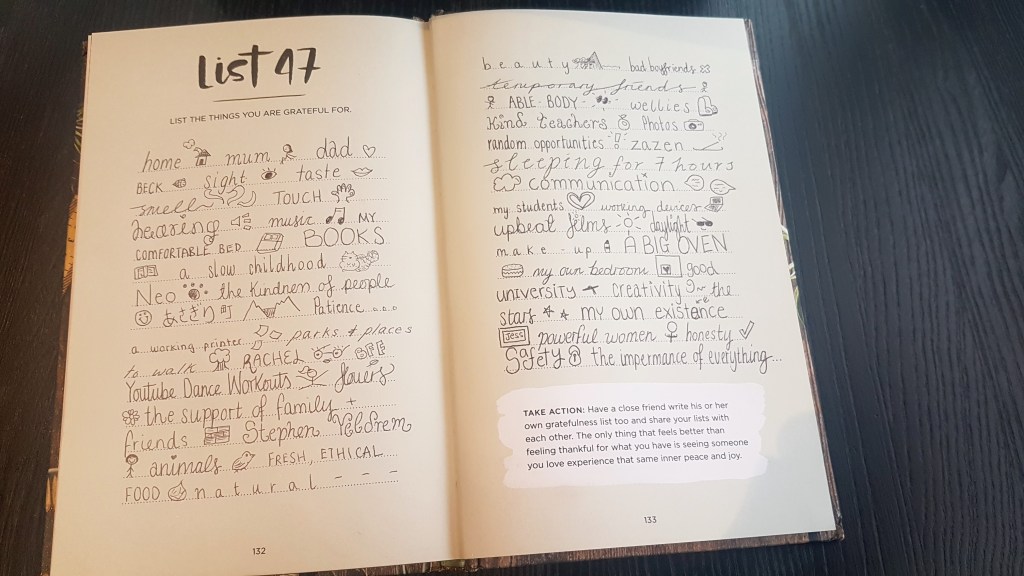 List 47
LIST THE THINGS YOU ARE GRATEFUL FOR.
home mum dad
BECK sight taste
smell TOUCH
hearing music MY
COMFORTABLE BED BOOKS
a slow childhood
Neo the kindness of people
あさぎり町 Patience....
a working printer parks & places
to walk RACHEL BFF
Youtube Dance Workouts flowers
the support of family +
friends Stephen
animals FRESH, ETHICAL
FOOD natural - -
132
beauty bad boyfriends
temporary friends
ABLE-BODY wellies
Kind teachers Photos
random opportunities zazen
sleeping for 7 hours
communication
my students working devices
upbeat films daylight
make-up A BIG OVEN
my own bedroom good
university creativity the
stars my own existence
JESS powerful women honesty
Safety the impermance of everything...
TAKE ACTION: Have a close friend write his or her
own gratefulness list too and share your lists with
each other. The only thing that feels better than
feeling thankful for what you have is seeing someone
you love experience that same inner peace and joy.
133